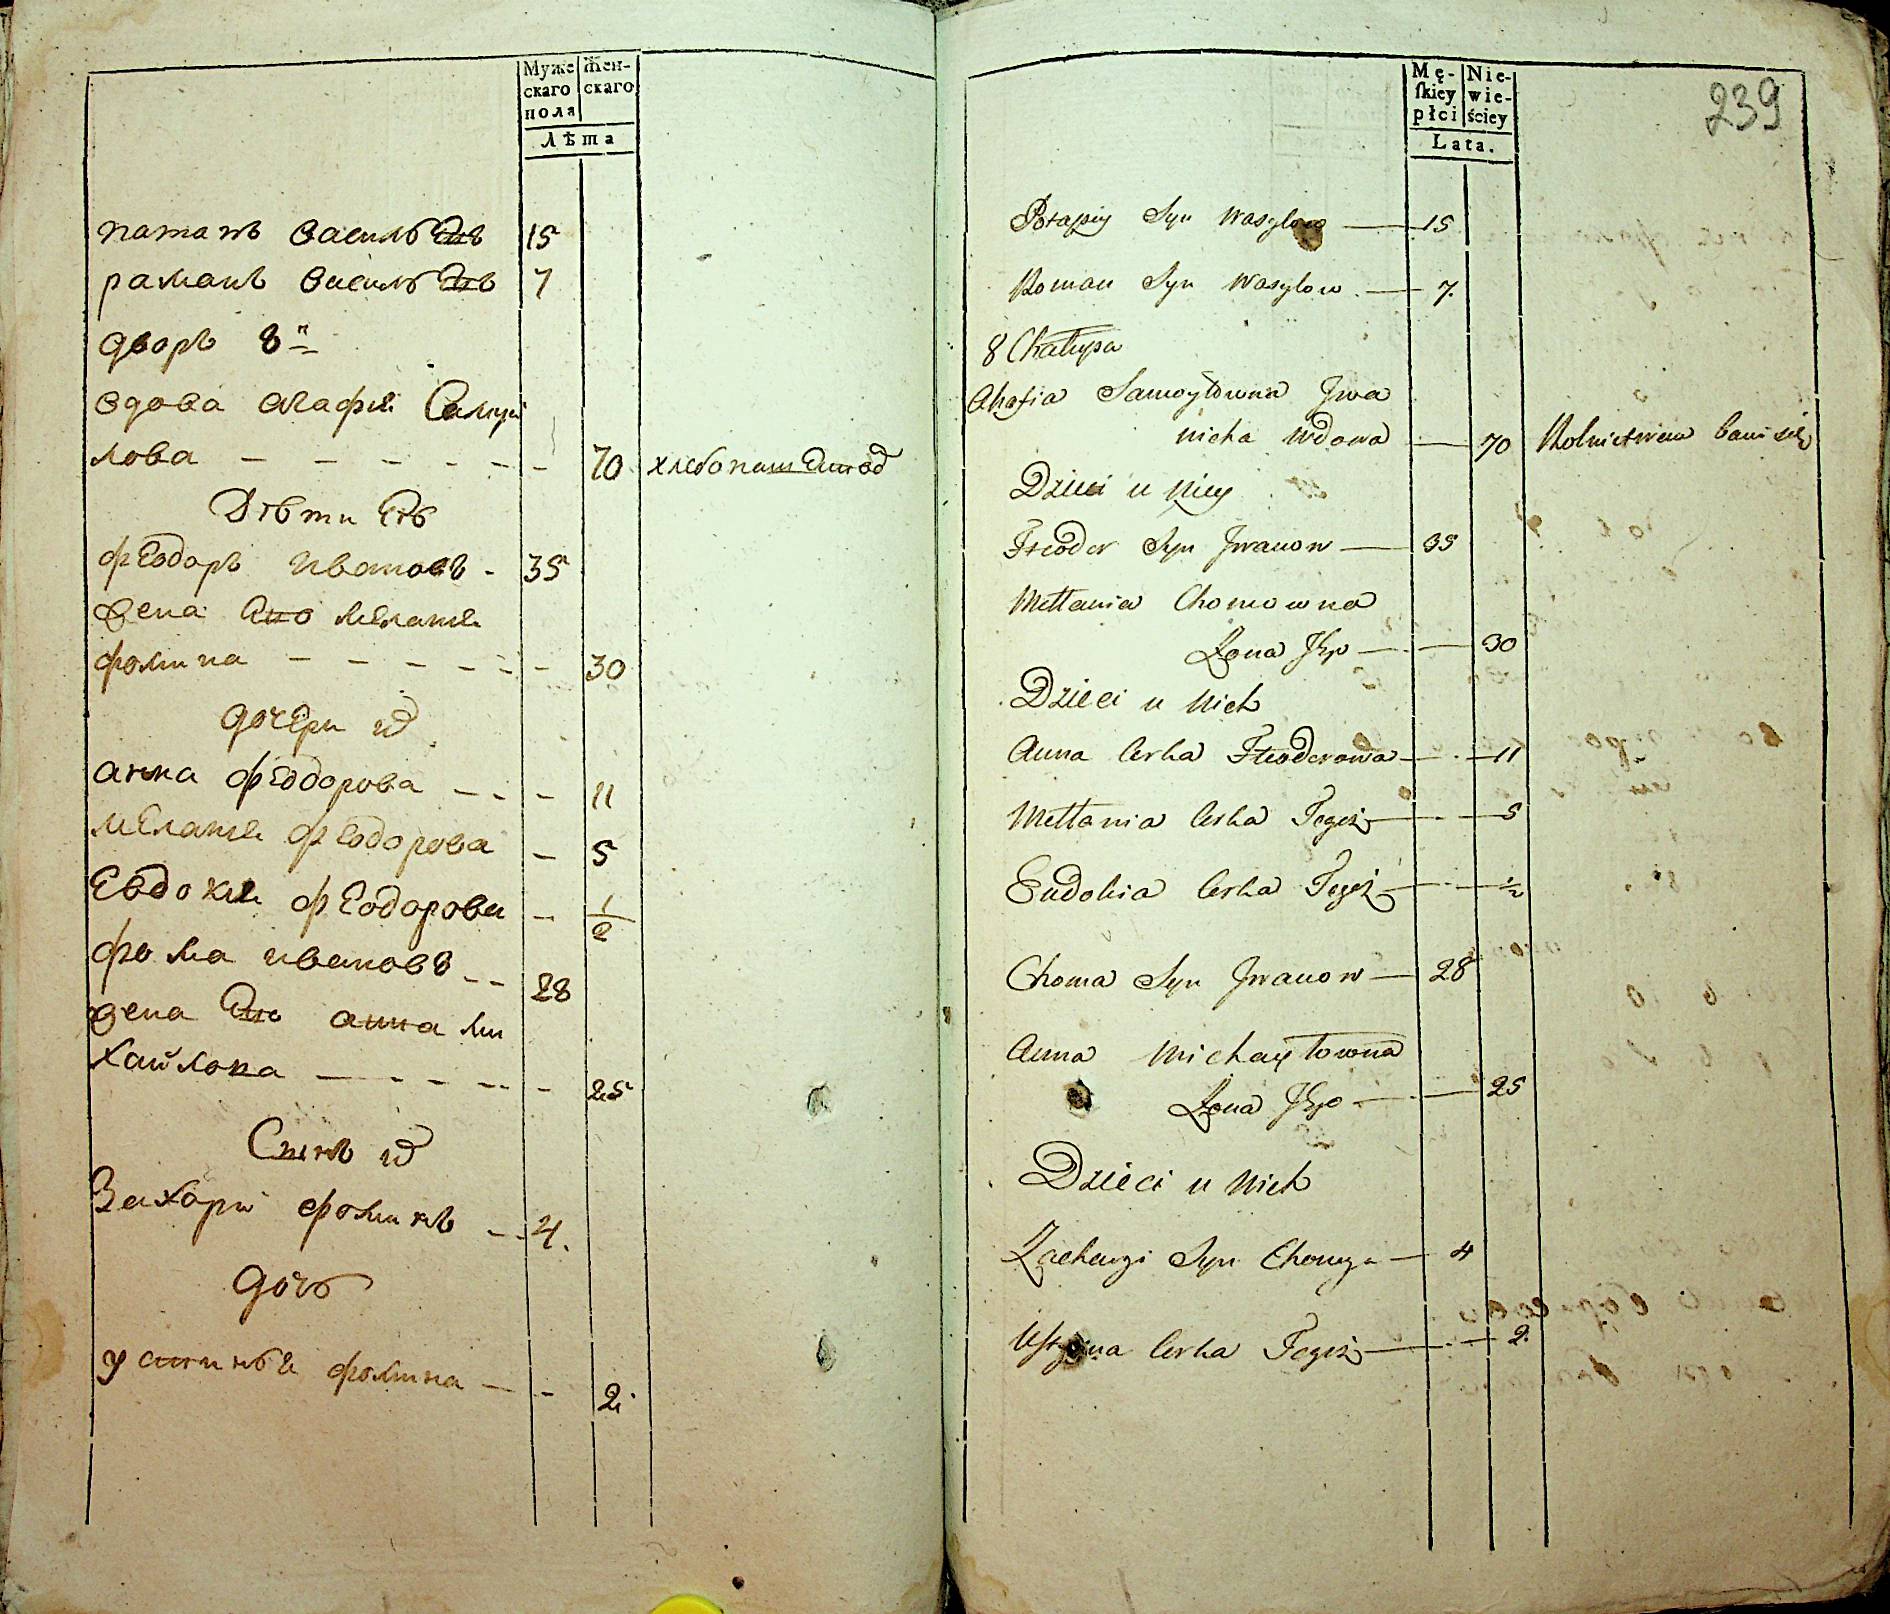 Муже
скаго
пола
Жен-
скаго
Лѣта
патапъ Васильевъ 15
раманъ Васильевъ 7
дворъ 8й
Вдова агафия Самуй
лова - - - - - - 70 хлебопашец
Дѣти Еѣ
феодоръ Ивановъ - 35
жена его мелания
фомина - - - - - - 30
дочери их
анна феодорова - - - 11
мелания феодорова - 5
Евдокия феодорова - 1/2
фома ивановъ - - 28
жена Его анна ми
хайлова - - - - - - 25
Сынъ их
Захари фоминъ - - 4.
дочь
устинья фомина - - 2.
Mę-
ſkiey
płci
Nie-
wie-
ściey
Lata.
239
Potapiy Syn Wasylow 15
Roman Syn Wasylow 7.
8 Chałupa
Ahafia Samoyłowna Jwa
nicha Wdowa 70 Rolnictwem bawi się
Dzieci u Niey
Fteodor Syn Jwanow 35
Mełłania Chomowna
Żona Jego 30
Dzieci u Nich
Anna Corka Fteodorowa 11
Mełłania Corka Tegoż 5
Eudokia Corka Tegoż 1/2
Choma Syn Jwanow 28
Anna Michayłowna
Żona Jego 25
Dzieci u Nich
Zacharyi Syn Chomy 4
Uſtyina Corka Tegoż 2.